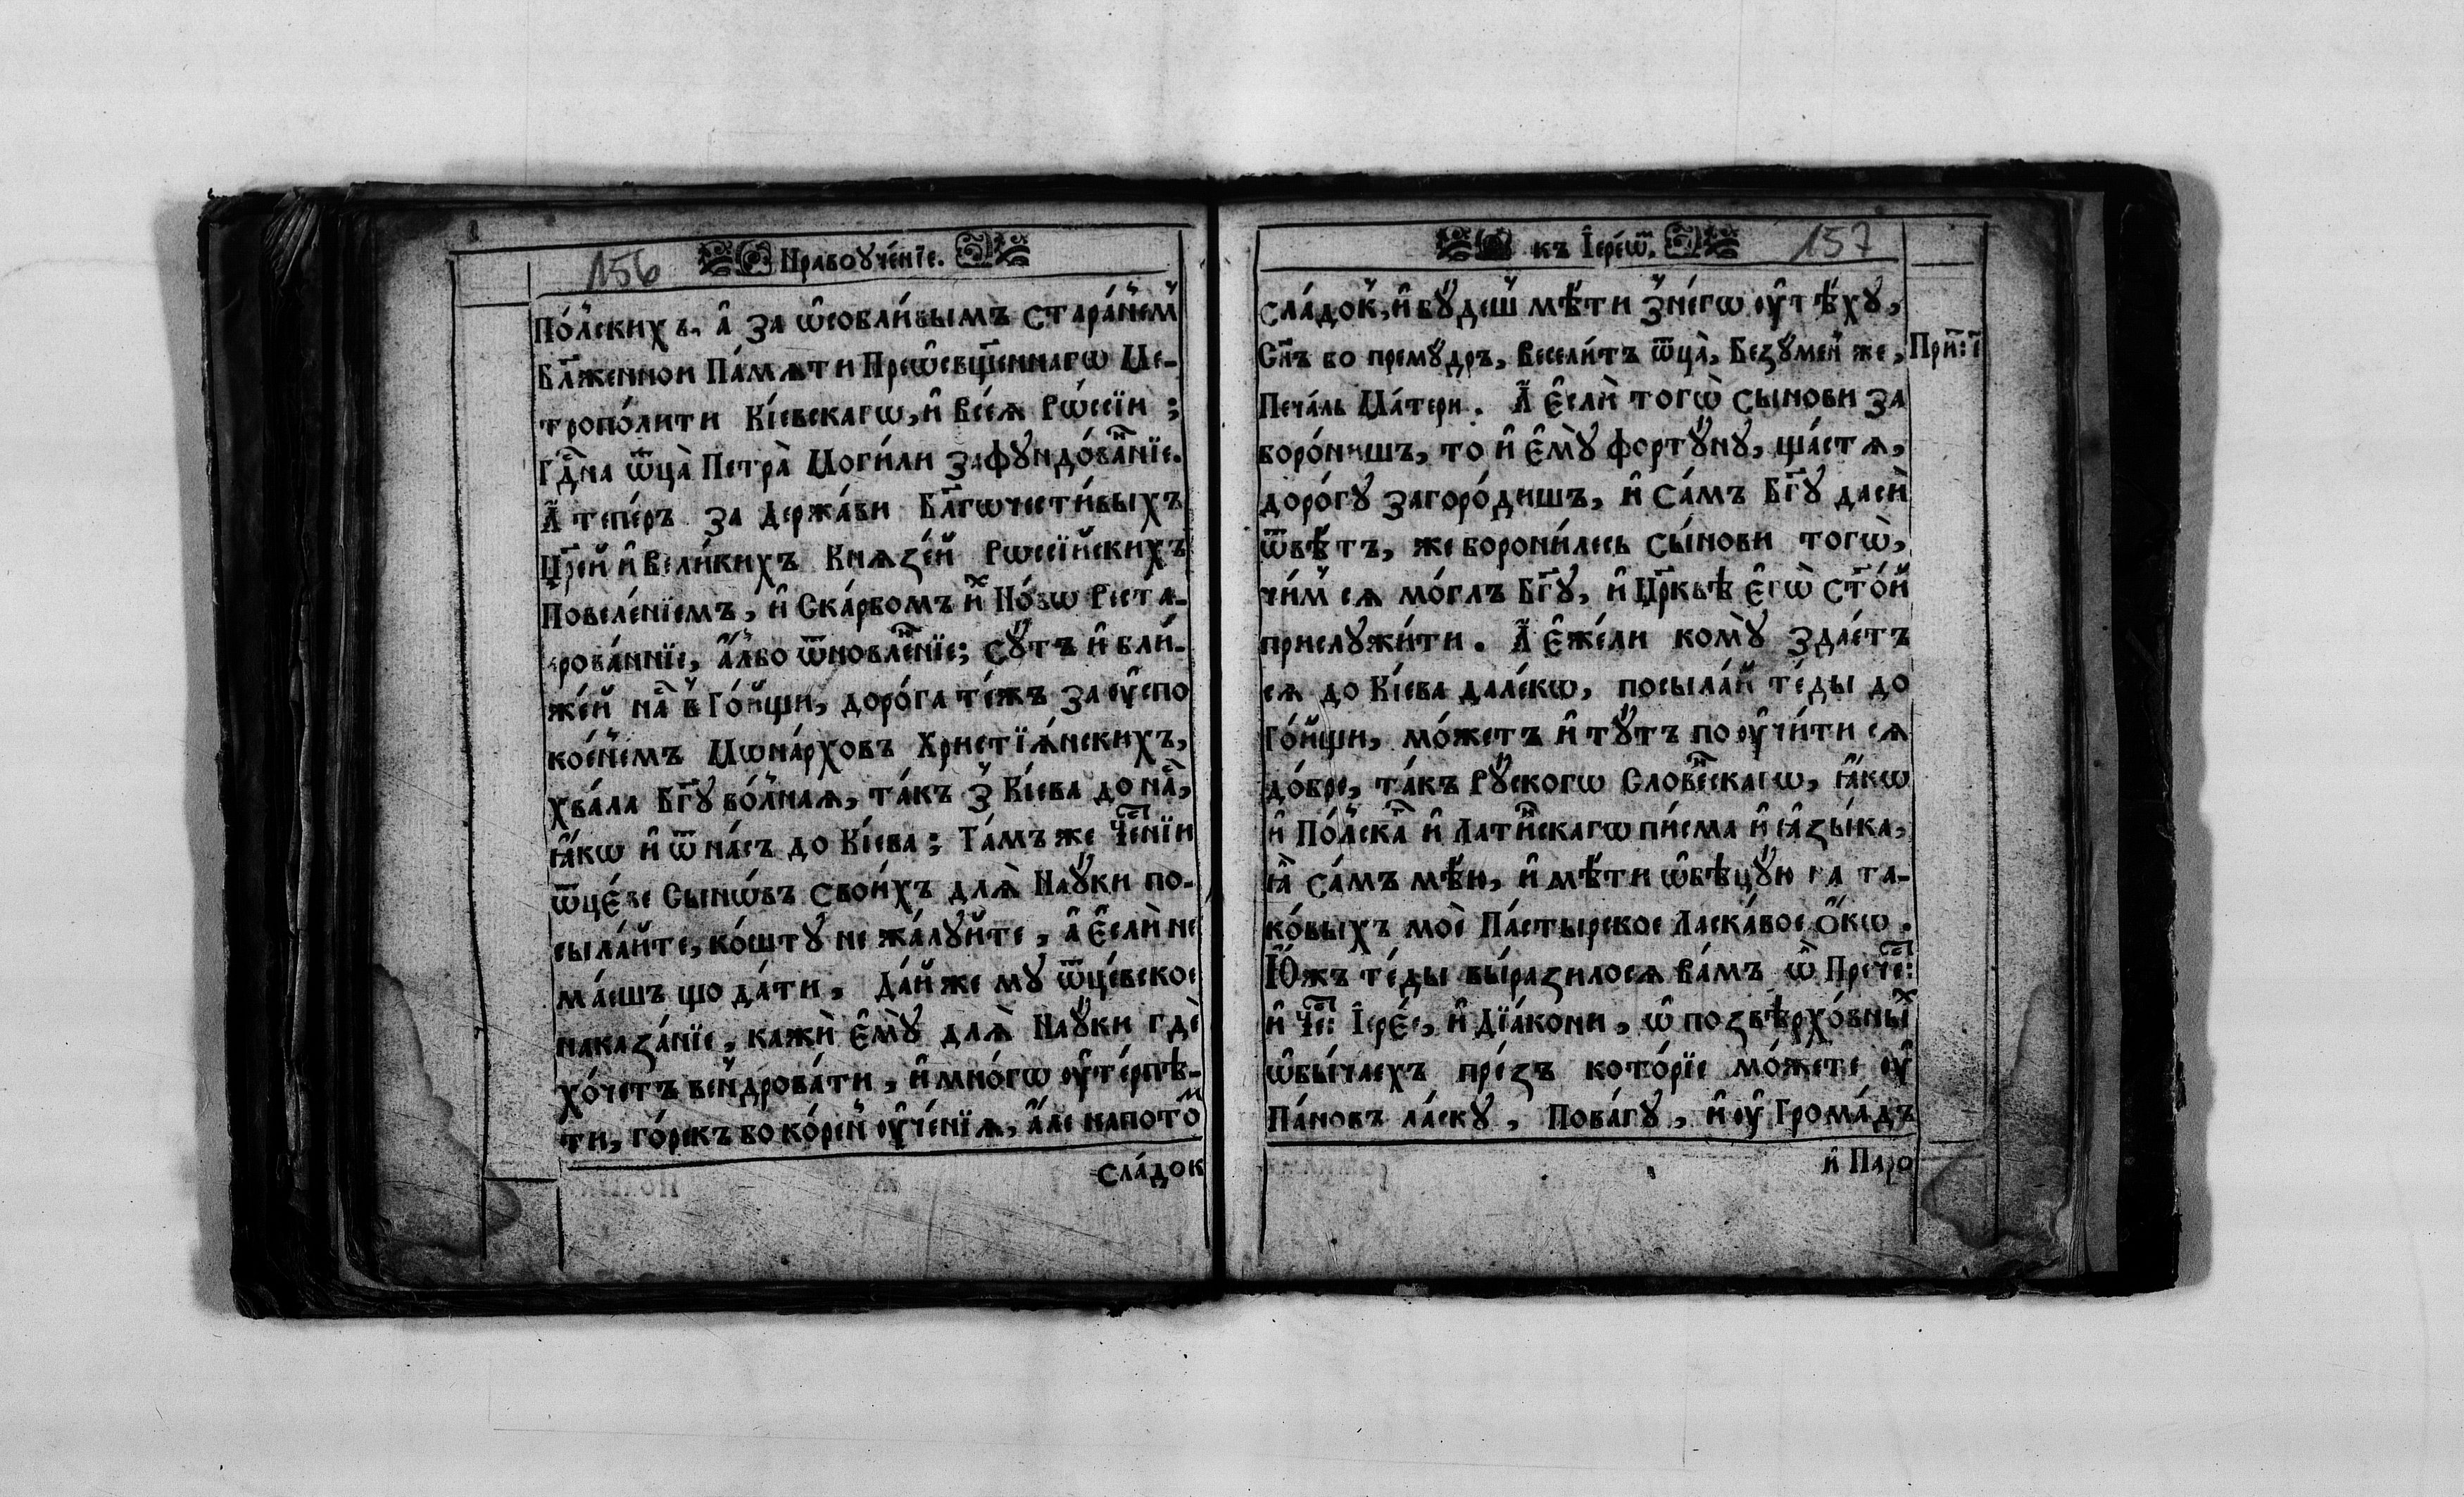 156 Нравоꙋче́нїе.
По́лскихъ. а҆ за ѡ҆собли́вымъ стара́нїем
Бл҃женнои Па́мѧти Преѡ҆свщ҃еннагѡ Ме-
трополи́ти Кі́евскагѡ, и҆ Всеѧ̀ Рѡ́ссїи;
Гдⷭ҇на ѿца̀ Петра̀ Моги́ли зафꙋндова́нїе.
А҆ тепе́ръ за Держа́ви Бл҃гѡчести́выхъ
Цр҃ей и҆ Вели́кихъ Кнѧзе́й Рѡссі́йскихъ
Повеле́нїемъ, и҆ Ска́рбомъ и҆хъ Но́вѡ Реста-
ѵрова́ннїе, а҆́лбо ѿновле́нїе; сꙋ́тъ и҆ бли́-
же́й на́с в Го́йщи, доро́га те́жъ за ꙋ҆спо
кое́нїемъ Мѡна́рховъ Христїѧ́нскихъ,
хвала̀ Бг҃ꙋ во́лнаѧ, та́къ з Кі́ева до на́с,
ꙗ҆́кѡ и҆ ѿ на́съ до Кі́ева; Та́мъ же Чⷭ҇нїи
ѿце́ве Сынѡ́въ свои́хъ длѧ̀ Наꙋ́ки по-
сыла́йте, ко́штꙋ не жа́лꙋйте, а҆ Е҆слѝ не
ма́ешъ що да́ти, Да́й же мꙋ ѿце́вское
наказа́нїе, кажѝ Е҆мꙋ̀ длѧ̀ Наꙋ́ки гдѐ
хо́четъ вендрова́ти, и҆ мно́гѡ ꙋ҆терпѣ́-
ти, го́рекъ бо ко́рен ꙋ҆че́нїѧ, а҆ле напото́м
сла́док
къ І҆ере́ѡⷨ. 157
сла́док, и҆ бꙋ́деш мѣ́ти з не́гѡ ꙋ҆тѣ́хꙋ,
Сн҃ъ бо премꙋ́дръ, Весели́тъ ѿца̀, Безꙋ́мен же, При⁘ і҃
Печа́ль Ма́тери. А҆ Е҆слѝ тогѡ̀ сы́нови за
боро́нишъ, то и҆ Е҆мꙋ̀ фортꙋ́нꙋ, ща́стѧ,
доро́гꙋ загоро́дишъ, и҆ са́мъ Бг҃ꙋ даси́
ѿвѣ́тъ, же борони́лесь сы́нови тогѡ̀,
чи́м сѧ мо́глъ Бг҃ꙋ, и҆ Цр҃квѣ Е҆гѡ̀ ст҃о́й
прислꙋжи́ти. А҆ Е҆же́ли комꙋ̀ здае́тъ
сѧ до Кі́ева дале́кѡ, посыла́й те́ды до
Го́йщи, мо́жетъ и҆ тꙋ́тъ поꙋ҆чи́ти сѧ
до́бре, та́къ Рꙋ́скогѡ Слове́нскагѡ, ꙗ҆́кѡ
и҆ По́лскаг и҆ Лати́нскагѡ пи́сма и҆ ꙗ҆зы́ка,
ꙗ҆̀ са́мъ мѣ́ю, и҆ мѣ́ти ѡ҆бѣцꙋ́ю на та-
ко́выхъ моѐ Па́стырское Ласка́вое Ѻ҆́кѡ.
Ю҆жъ те́ды вы́разилосѧ ва́мъ ѡ҆ Пречⷭ҇:
и҆ Чⷭ҇: І҆ере́е, и҆ Дїа́кони, ѡ҆ позвѣрхо́вных
ѡ҆бы́чаехъ пре́зъ кото́рїе мо́жете ꙋ҆
Па́новъ ла́скꙋ, Пова́гꙋ, и҆ ꙋ҆ Грома́дъ
и҆ Паро